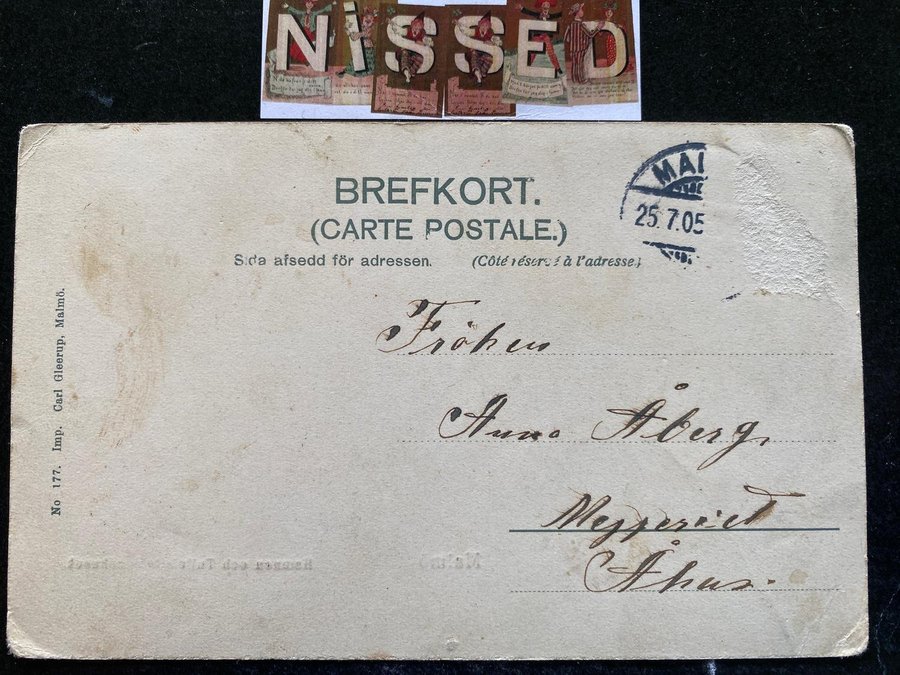 NISSED
BREFKORT.
(CARTE POSTALE.)
Sida afsedd för adressen. (Côté réservé à l'adresse)
MAL
25.7.05
Fröken
Anna Åberg,
Åhus.
No 177. Imp. Carl Gleerup, Malmö.